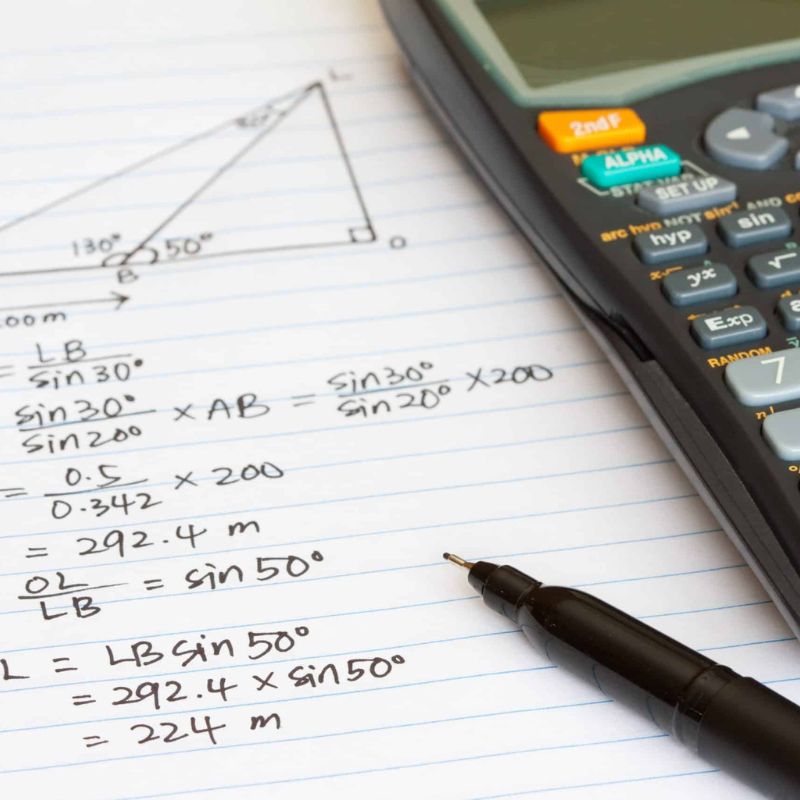 L
20°
130° 50°
B O
00m
= LB / sin30°
sin30° / sin20° × AB = sin30° / sin20° × 200
= 0.5 / 0.342 × 200
= 292.4 m
OL / LB = sin50°
L = LB sin50°
= 292.4 × sin50°
= 224 m
2ndF
ALPHA
SET UP
arc hyp NOT sin⁻¹ AND
hyp sin
yx √
Exp
RANDOM
7
n!